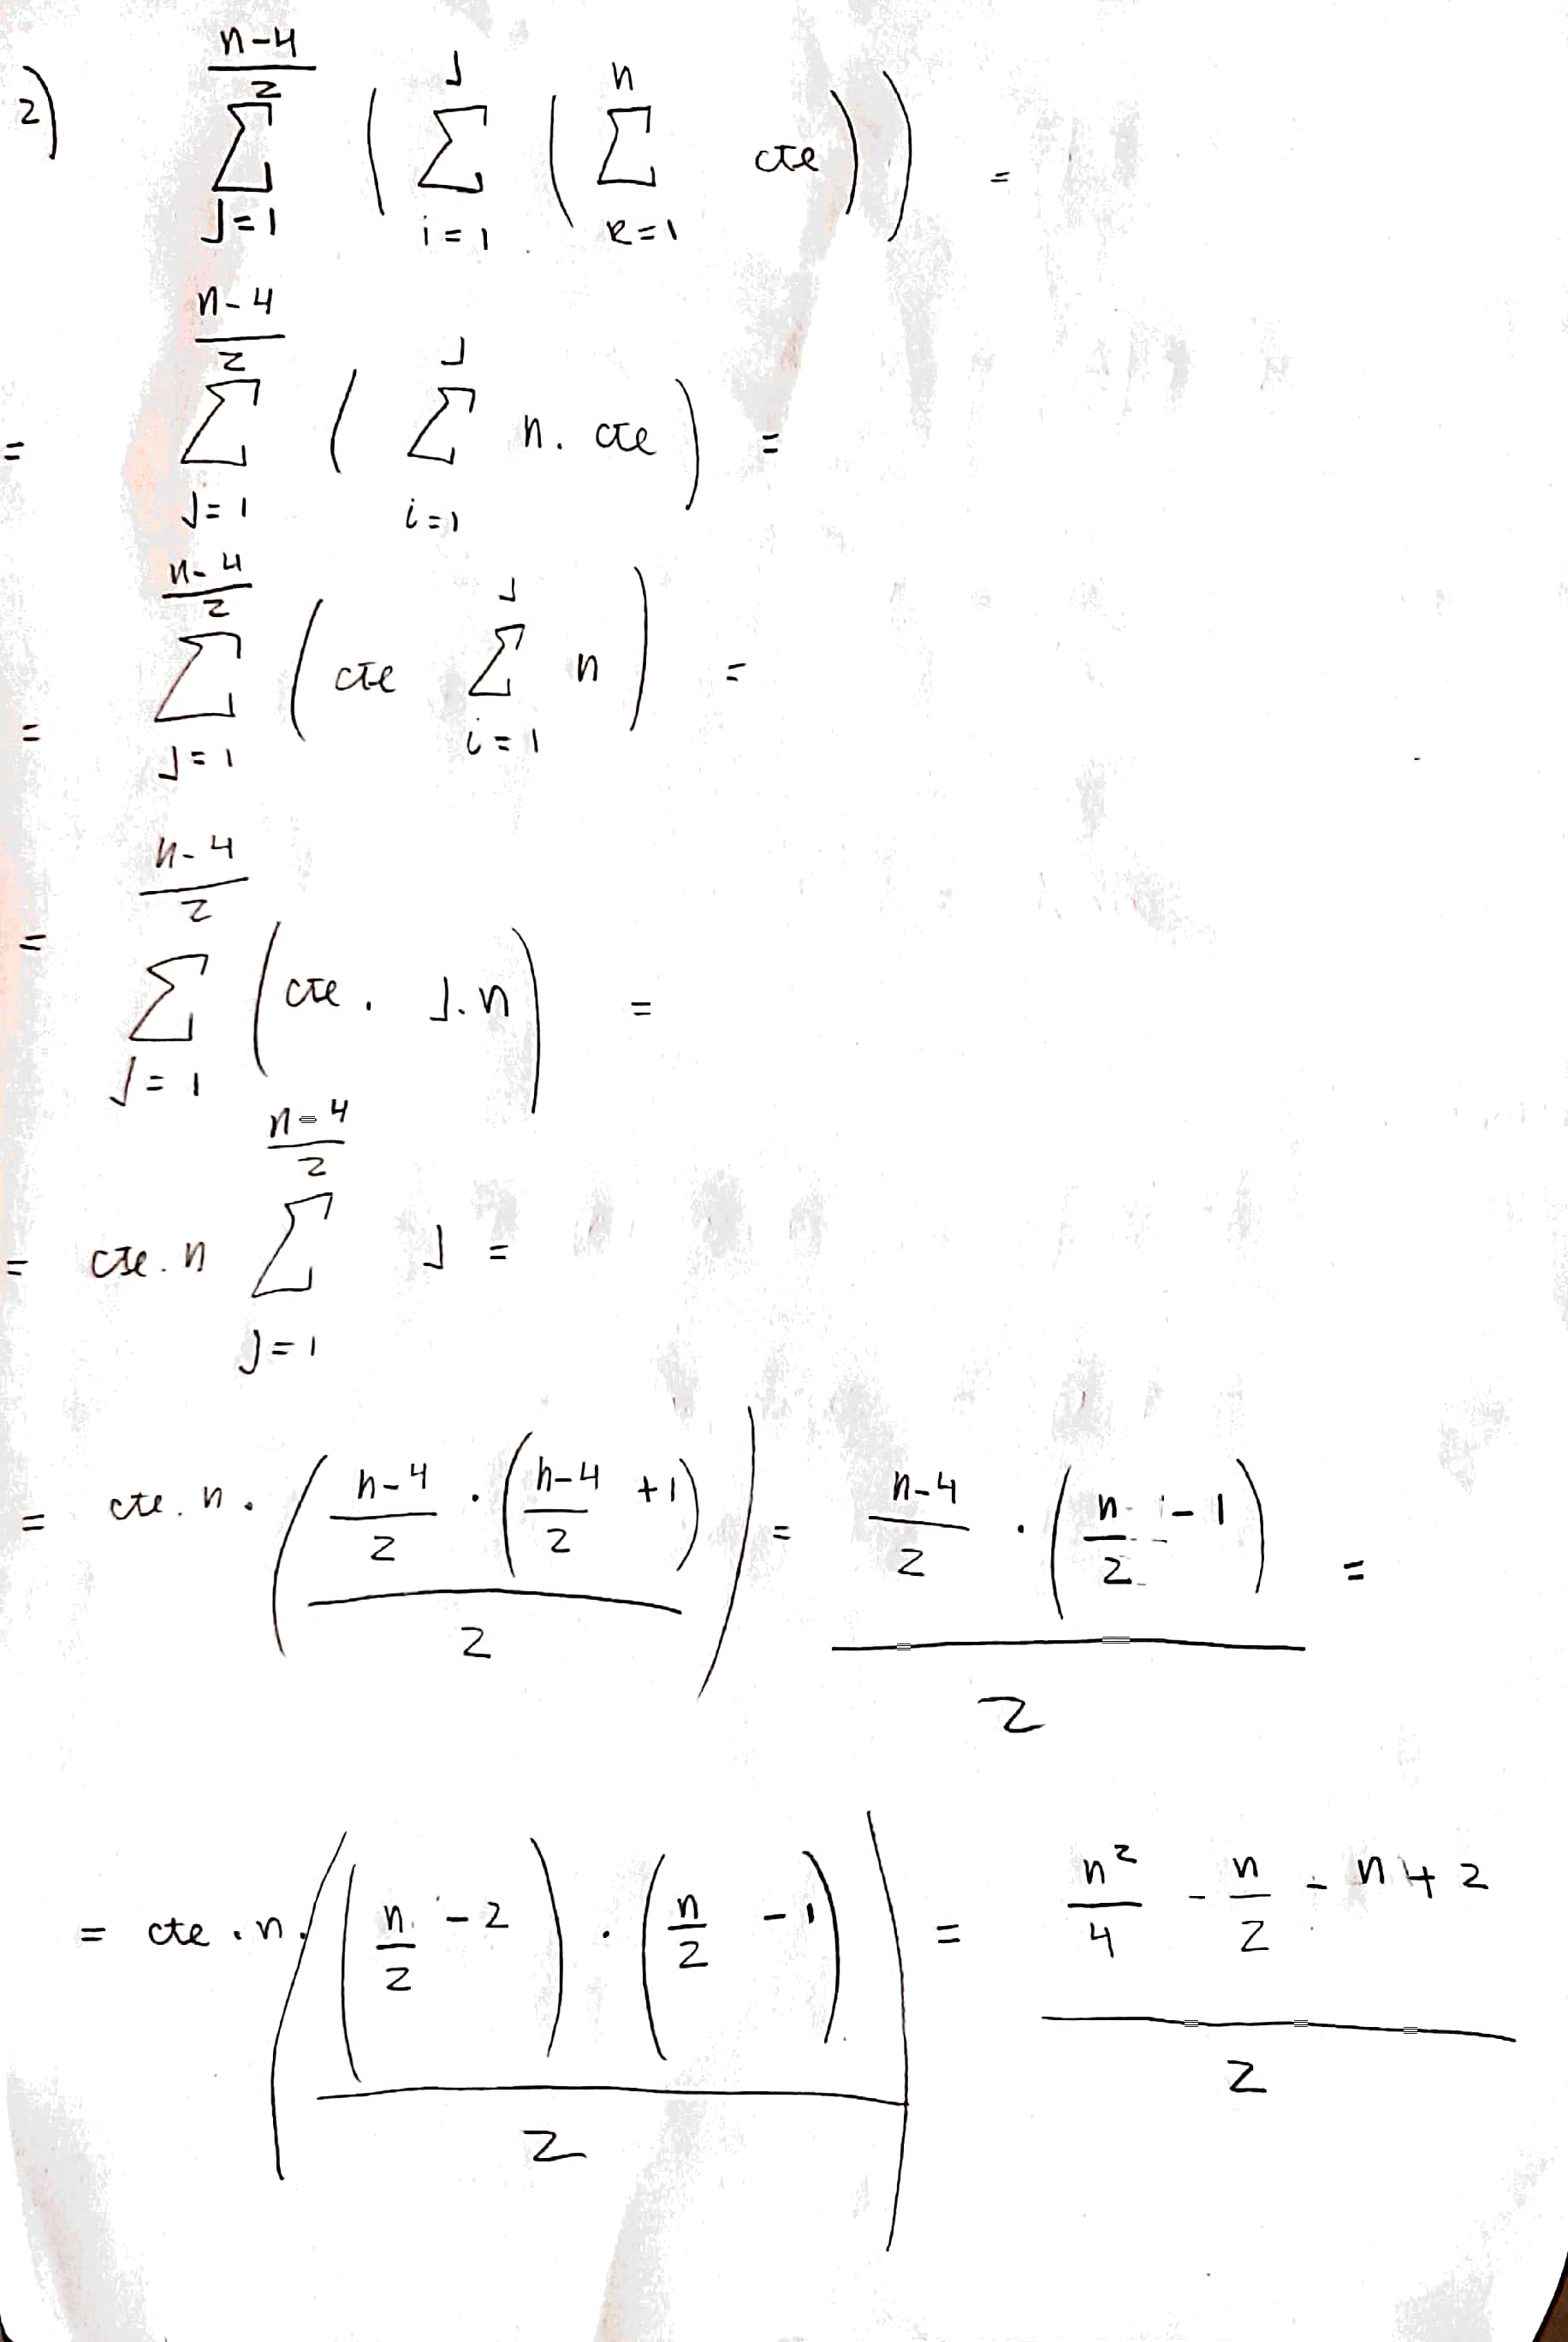 2) \sum_{J=1}^{\frac{n-4}{2}} \left( \sum_{i=1}^{J} \left( \sum_{k=1}^{n} cte \right) \right) =
= \sum_{J=1}^{\frac{n-4}{2}} \left( \sum_{i=1}^{J} n. cte \right) =
= \sum_{J=1}^{\frac{n-4}{2}} \left( cte \sum_{i=1}^{J} n \right) =
= \sum_{J=1}^{\frac{n-4}{2}} \left( cte . J.n \right) =
= cte.n \sum_{J=1}^{\frac{n-4}{2}} J =
= cte.n. \left( \frac{\frac{n-4}{2} \cdot \left( \frac{n-4}{2} +1 \right)}{2} \right) = \frac{\frac{n-4}{2} \cdot \left( \frac{n}{2} -1 \right)}{2} =
= cte.n. \left( \frac{\left( \frac{n}{2} -2 \right) \cdot \left( \frac{n}{2} -1 \right)}{2} \right) = \frac{\frac{n^2}{4} - \frac{n}{2} - n + 2}{2}